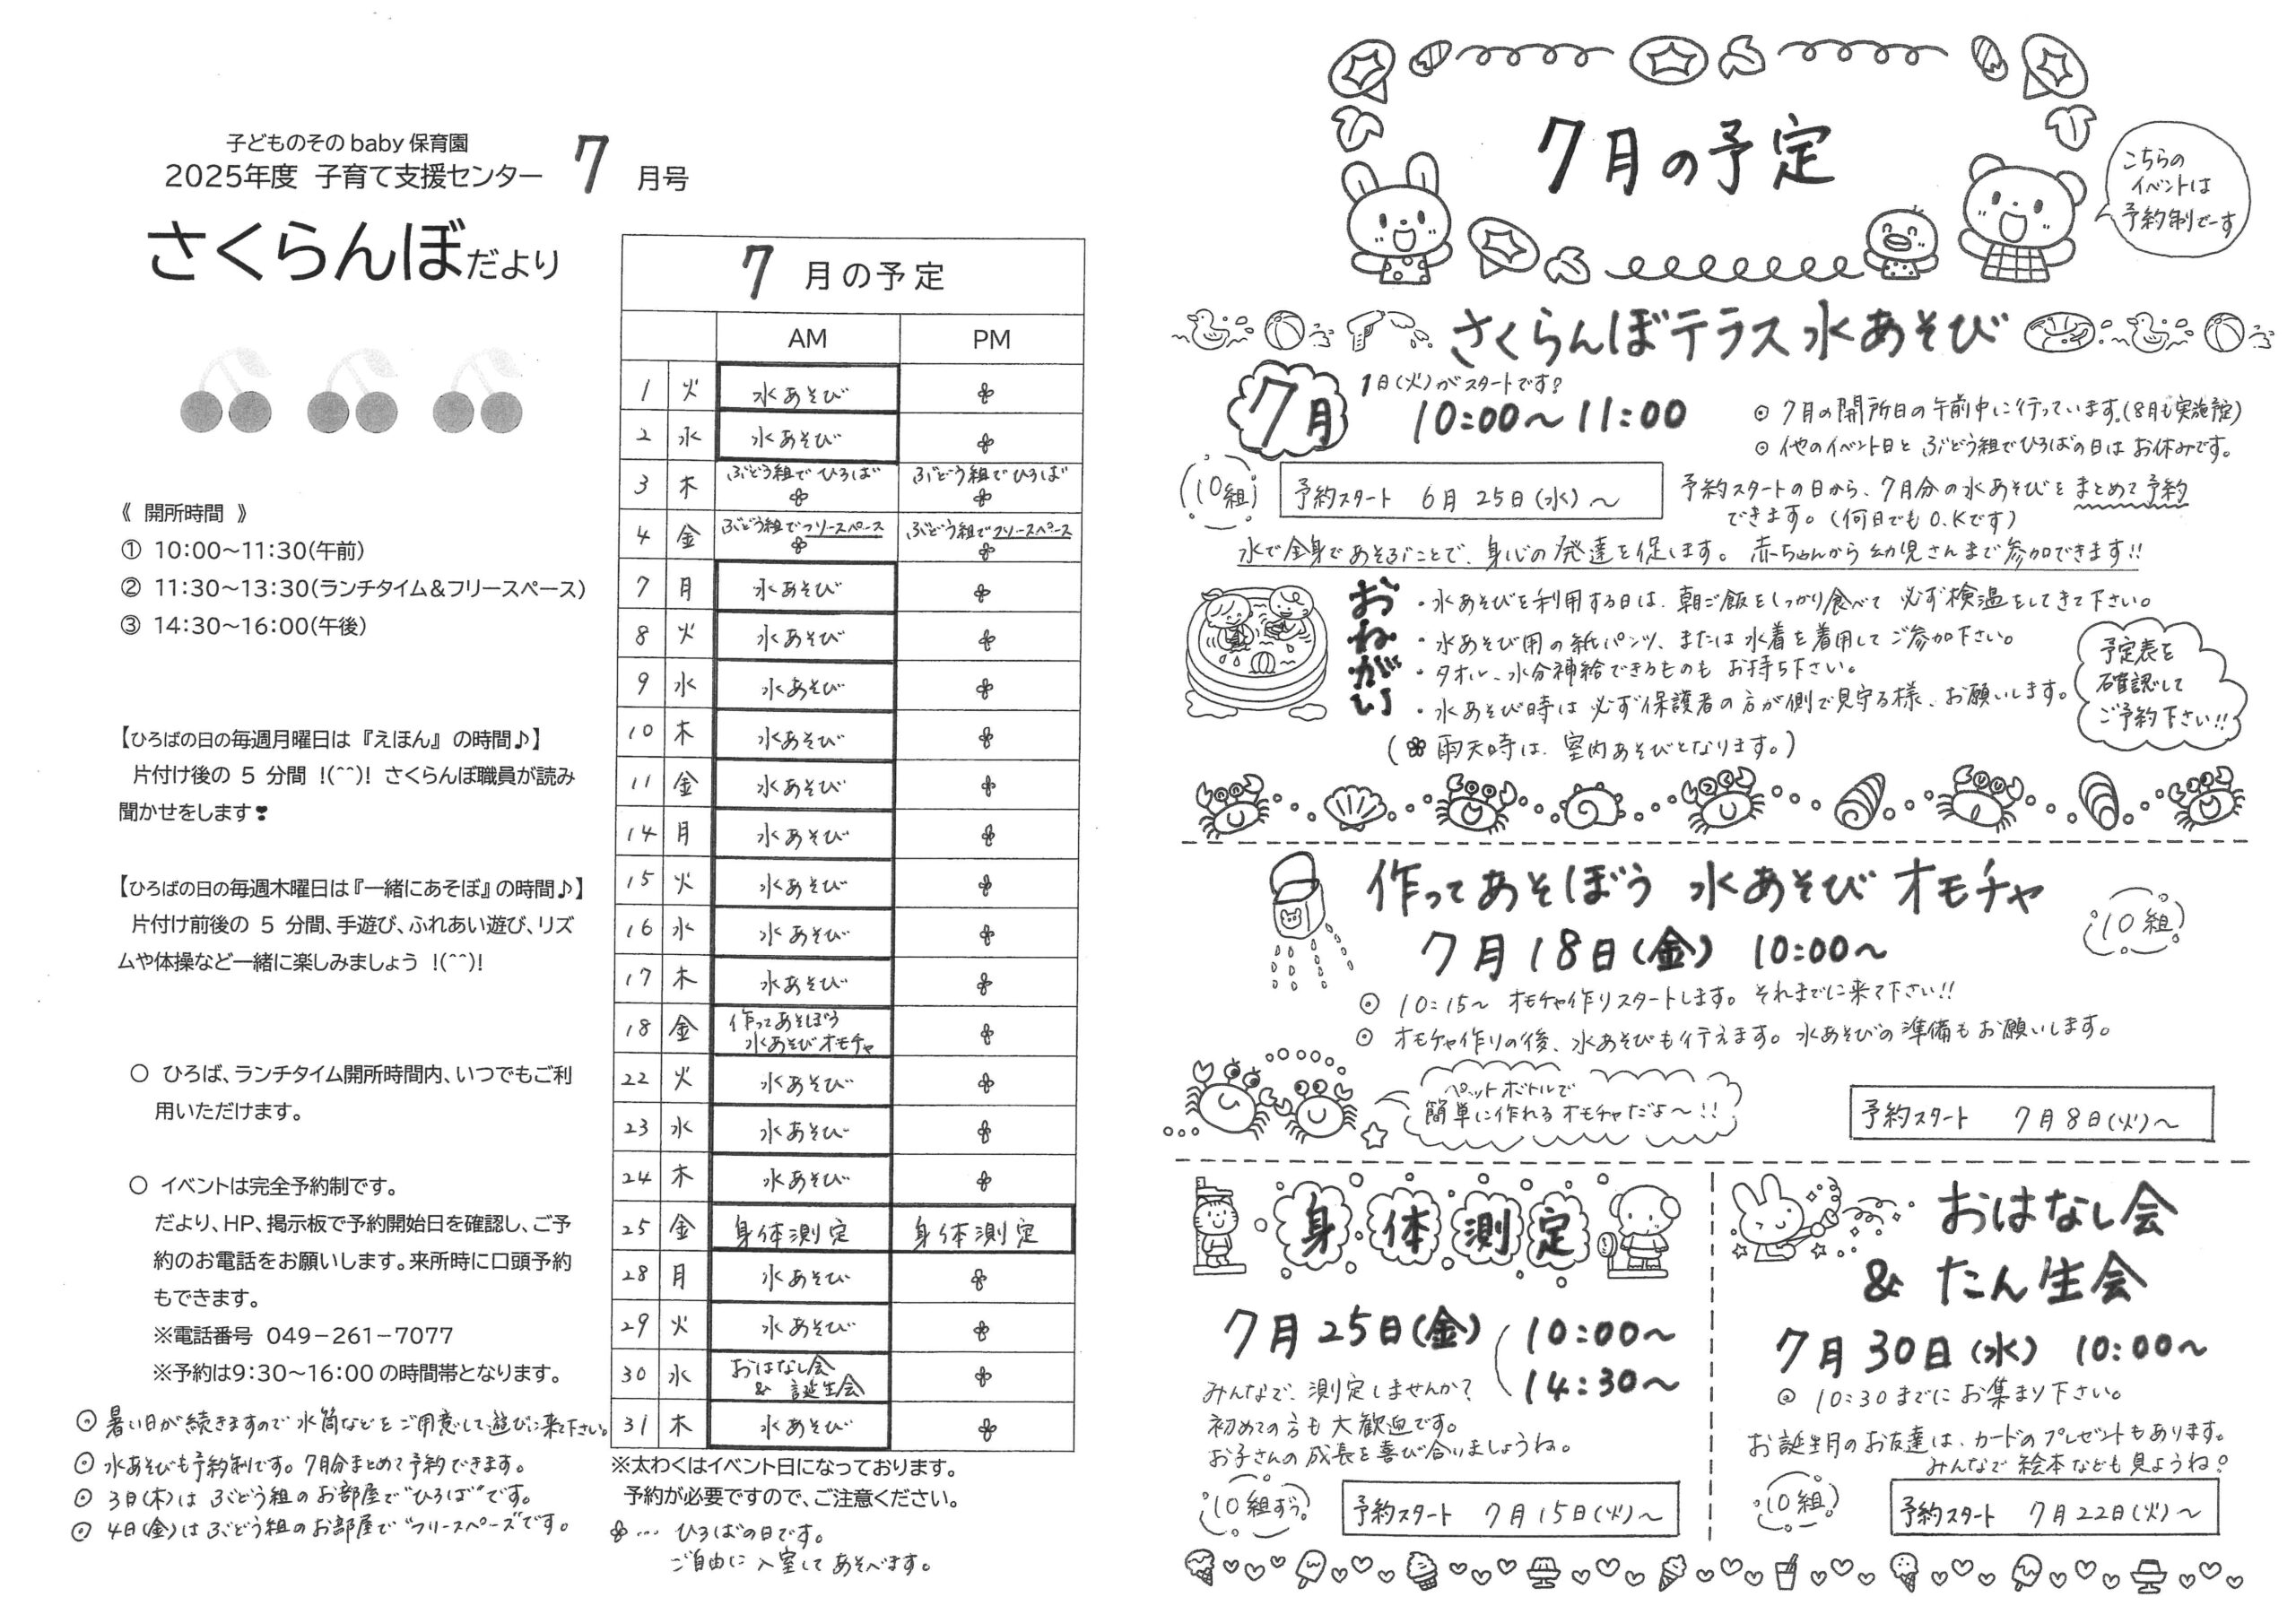 子どものそのbaby保育園
2025年度 子育て支援センター 7 月号
さくらんぼだより
《 開所時間 》
① 10:00～11:30(午前)
② 11:30～13:30(ランチタイム＆フリースペース)
③ 14:30～16:00(午後)
【ひろばの日の毎週月曜日は『えほん』の時間♪】
片付け後の 5 分間 !(^^)! さくらんぼ職員が読み
聞かせをします❣
【ひろばの日の毎週木曜日は『一緒にあそぼ』の時間♪】
片付け前後の 5 分間、手遊び、ふれあい遊び、リズ
ムや体操など一緒に楽しみましょう !(^^)!
○ ひろば、ランチタイム開所時間内、いつでもご利
用いただけます。
○ イベントは完全予約制です。
だより、HP、掲示板で予約開始日を確認し、ご予
約のお電話をお願いします。来所時に口頭予約
もできます。
※電話番号 049－261－7077
※予約は9:30～16:00の時間帯となります。
◎ 暑い日が続きますので水筒などをご用意して遊びに来て下さい。
◎ 水あそびも予約制です。7月分まとめて予約できます。
◎ 3日(木)は ぶどう組のお部屋で"ひろば"です。
◎ 4日(金)は ぶどう組のお部屋で"フリースペース"です。
7 月の予定
AM PM
1 火 水あそび ✿
2 水 水あそび ✿
3 木 ぶどう組でひろば ✿ ぶどう組でひろば ✿
4 金 ぶどう組でフリースペース ✿ ぶどう組でフリースペース ✿
7 月 水あそび ✿
8 火 水あそび ✿
9 水 水あそび ✿
10 木 水あそび ✿
11 金 水あそび ✿
14 月 水あそび ✿
15 火 水あそび ✿
16 水 水あそび ✿
17 木 水あそび ✿
18 金 作ってあそぼう 水あそびオモチャ ✿
22 火 水あそび ✿
23 水 水あそび ✿
24 木 水あそび ✿
25 金 身体測定 身体測定
28 月 水あそび ✿
29 火 水あそび ✿
30 水 おはなし会 & 誕生会 ✿
31 木 水あそび ✿
※太わくはイベント日になっております。
予約が必要ですので、ご注意ください。
✿… ひろばの日です。
ご自由に入室してあそべます。
7月の予定
こちらの
イベントは
予約制でーす
さくらんぼテラス水あそび
7月
1日(火)がスタートです!
10:00～11:00
◎ 7月の開所日の午前中に行っています。(8月も実施予定)
◎ 他のイベント日と ぶどう組でひろばの日は お休みです。
10組
予約スタート 6月 25日(水)～
予約スタートの日から、7月分の水あそびをまとめて予約
できます。(何日でもO.Kです)
水で全身であそぶことで、身心の発達を促します。赤ちゃんから幼児さんまで参加できます!!
おねがい
・水あそびを利用する日は、朝ご飯をしっかり食べて 必ず検温をしてきて下さい。
・水あそび用の紙パンツ、または水着を着用してご参加下さい。
・タオル、水分補給できるものも お持ち下さい。
・水あそび時は 必ず保護者の方が側で見守る様、お願いします。
(✿雨天時は、室内あそびとなります。)
予定表を
確認して
ご予約下さい!!
作ってあそぼう 水あそびオモチャ
10組
7月18日(金) 10:00～
◎ 10:15～ オモチャ作りスタートします。それまでに来て下さい!!
◎ オモチャ作りの後、水あそびも行えます。水あそびの準備もお願いします。
ペットボトルで
簡単に作れるオモチャだよ～!!
予約スタート 7月8日(火)～
身体測定
7月25日(金) 10:00～
14:30～
みんなで、測定しませんか?
初めての方も大歓迎です。
お子さんの成長を喜び合いましょうね。
10組ずつ
予約スタート 7月15日(火)～
おはなし会
& たん生会
7月30日(水) 10:00～
◎ 10:30までにお集まり下さい。
お誕生月のお友達は、カードのプレゼントもあります。
みんなで絵本なども見ようね!
10組
予約スタート 7月22日(火)～